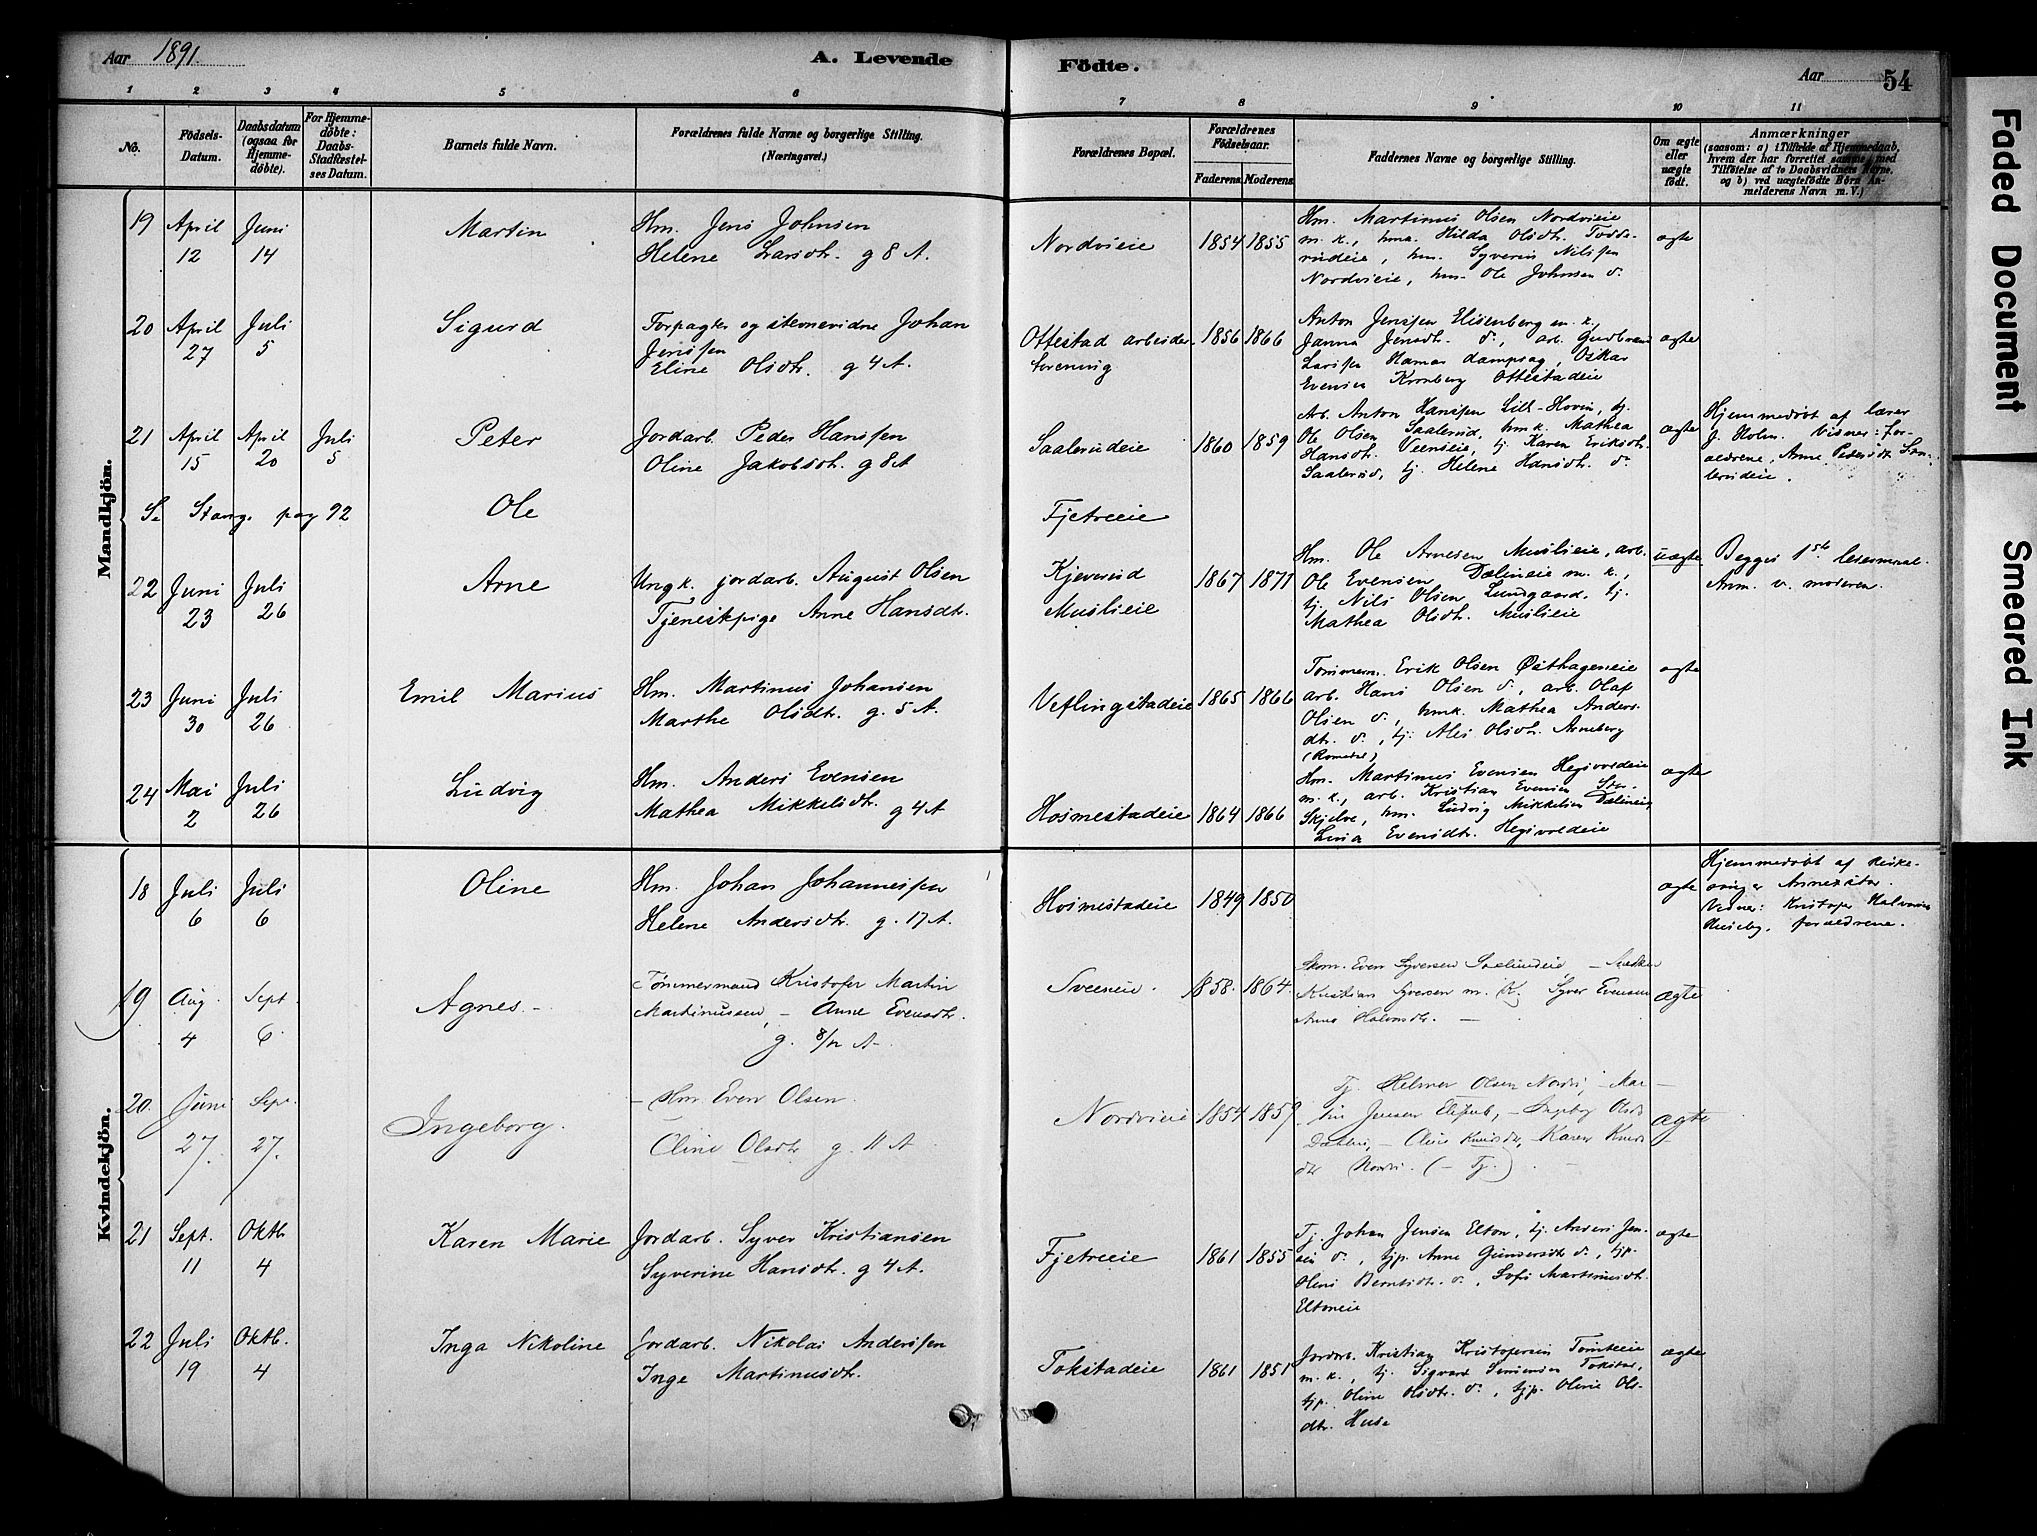 Aar 1891.
A. Levende Födte.
Aar 54
1 2 3 4 5 6 7 8 9 10 11
No.
Födsels-Datum.
Daabsdatum (ogsaa for Hjemme-döbte).
For Hjemme-döbte: Daabs-Stadfæstel-ses Datum.
Barnets fulde Navn.
Forældrenes fulde Navne og borgerlige Stilling.
(Næringsvei.)
Forældrenes Bopæl.
Forældrenes Födselsaar.
Faderens. Moderens.
Faddernes Navne og borgerlige Stilling.
Om ægte eller uægte födt.
Anmærkninger
(saasom: a) i Tilfælde af Hjemmedaab,
hvem der har forrettet samme, med
Tilföielse af to Daabsvidners Navne,
og b) ved uægtefödte Börn An-
melderens Navn m. V.)
Mandkjön.
19 April 12 Juni 14 Martin
Hm. Jens Johnsen
Helene Larsdtr. g 8 A.
Nordvieie 1854 1855
Hm. Martinus Olsen Nordvieie
m. k., hma. Hilda Olsdtr.
rudeie, hm. Syverin Nilssen
Nordvieie, hm. Ole Johnsen d.
ægte
20 April 27 Juli 5 Sigurd
Forpagter og stevnevidne Johan
Jenssen
Eline Olsdtr. g 4 A.
Ottestad arbeider-
forening
1856 1866
Anton Jenssen Elisenberg m. k.,
Janna Jensdtr. d., arb. Gudbrand
Larssen Hamar dampsag, Oskar
Evensen Kronborg Ottestadeie
ægte
21 April 15 April 20 Juli 5 Peter
Jordarb. Peder Hanssen
Oline Jakobsdtr. g 8 A
Saalerudeie 1860 1859
Arb. Anton Hanssen Lill-Hovin, tj.
Ole Olsen Saalerud, hmk. Mathea
Hansdtr. Veenseie, tj. Karen Eriksdtr.
Saalerud, tj. Helene Hansdtr. d.
ægte
Hjemmedöbt af lærer
J. Holm. Vidner: for-
ældrene, Anne Pedersdtr. Saa-
lerudeie.
Se Stange pag 92 Ole
Fjetreeie
22 Juni 23 Juli 26 Arne
Ungk. jordarb. August Olsen
Tjenestepige Anne Hansdtr.
Kjeverud
Muslieie
1867 1871
Hm. Ole Arnesen Muslieie, arb.
Ole Evensen Dælineie m. k.,
tj. Nils Olsen Lundgaard, tj.
Mathea Olsdtr. Muslieie
uægte
Begges 1ste leiermaal.
Anm. v. moderen.
23 Juni 30 Juli 26 Emil Marius
Hm. Martinus Johansen
Marthe Olsdtr. g. 5 A.
Veflingstadeie 1865 1866
Tømmerm. Erik Olsen Østhageneie
arb. Hans Olsen d., arb. Olaf
Olsen d., hmk. Mathea Anders-
dtr. d., tj. Alis Olsdtr. Arneberg
(Romedal)
ægte
24 Mai 2 Juli 26 Ludvig
Hm. Anders Evensen
Mathea Mikkelsdtr. g 4 A
Hosmestadeie 1864 1866
Hm. Martinus Evensen Hegivoldeie
m. k., arb. Kristian Evensen
Skjelve, hm. Ludvig Mikkelsen Dælineie,
Lina Evensdtr. Hegivoldeie
ægte
Kvindekjön.
18 Juli 6 Juli 6 Oline
Hm. Johan Johannessen
Helene Andersdtr. g. 17 A.
Hosmestadeie 1849 1850
ægte
Hjemmedöbt af
Vidner: Kristofer Halvorsen
Huseby, forældrene.
19 Aug. 4 Sept. 6. Agnes.
Tömmermand Kristofer Martin
Martinussen, – Anne Evensdtr.
g. 8/12 A.
Sveeneie. 1858. 1864.
Skom. Even Syversen
Kristian Syversen m. K. Syver Evensen
Anna Halvorsdtr.
ægte
20. Juni 27. Sept. 27. Ingeborg.
Hm. Even Olsen
Oline Olsdtr g. 11 A
Nordvieie 1854 1859
Tj. Helmer Olsen Nordvi, – Mar-
tin Jensen – Ingeborg Olsdtr
Dæhlin, – Oline Knudsdtr, – Karen Knuds-
dtr Nordvi. (– Tj.)
ægte
21 Sept. 11 Oktb. 4 Karen Marie
Jordarb. Syver Kristiansen
Syverine Hansdtr. g 4 A.
Fjetreeie 1861 1855
Tj. Johan Jensen Elton, tj. Anders Jen-
sen d., tjp. Anne Gundersdtr. d., tjp.
Oline Berntsdtr. d., Sofie Martinusdtr.
Eltoneie
ægte
22 Juli 19 Oktb. 4 Inga Nikoline
Jordarb. Nikolai Anderssen
Inge Martinusdtr.
Tokstadeie 1861 1851
Jordarb. Kristian Kristofersen Tomteeie
m. k., tj. Sigvard Simensen Tokstad,
tjp. Oline Olsdtr. d., tjp. Oline Ols-
dtr. Huse
ægte
Faded Document
Smeared Ink